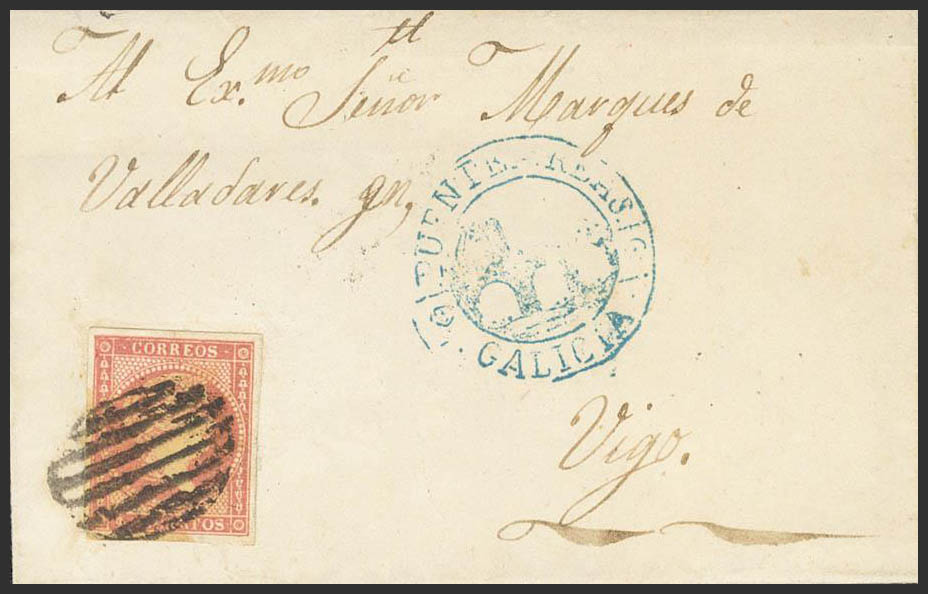 Al Ex.mo Señor Marques de
Valladares. gn,
PUENTE-AREAS
GALICIA
CORREOS
Vigo.